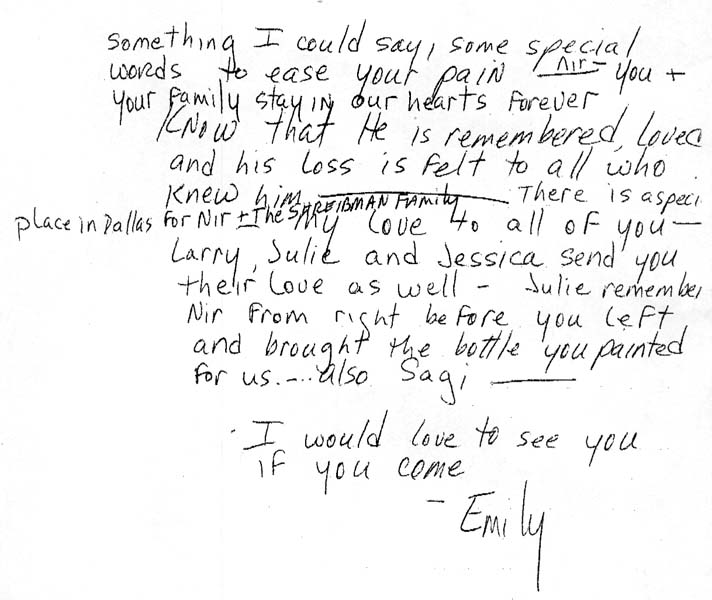 something I could say, some special
words to ease your pain — Nir — you +
your family stay in our hearts forever
Know that He is remembered, loved
and his loss is felt to all who
knew him — There is a speci
place in Dallas for Nir + The SHREIBMAN FAMILY
My love to all of you —
Larry, Julie and Jessica send you
their love as well - Julie remember
Nir from right before you left
and brought the bottle you painted
for us.-... also Sagi —
I would love to see you
if you come
- Emily